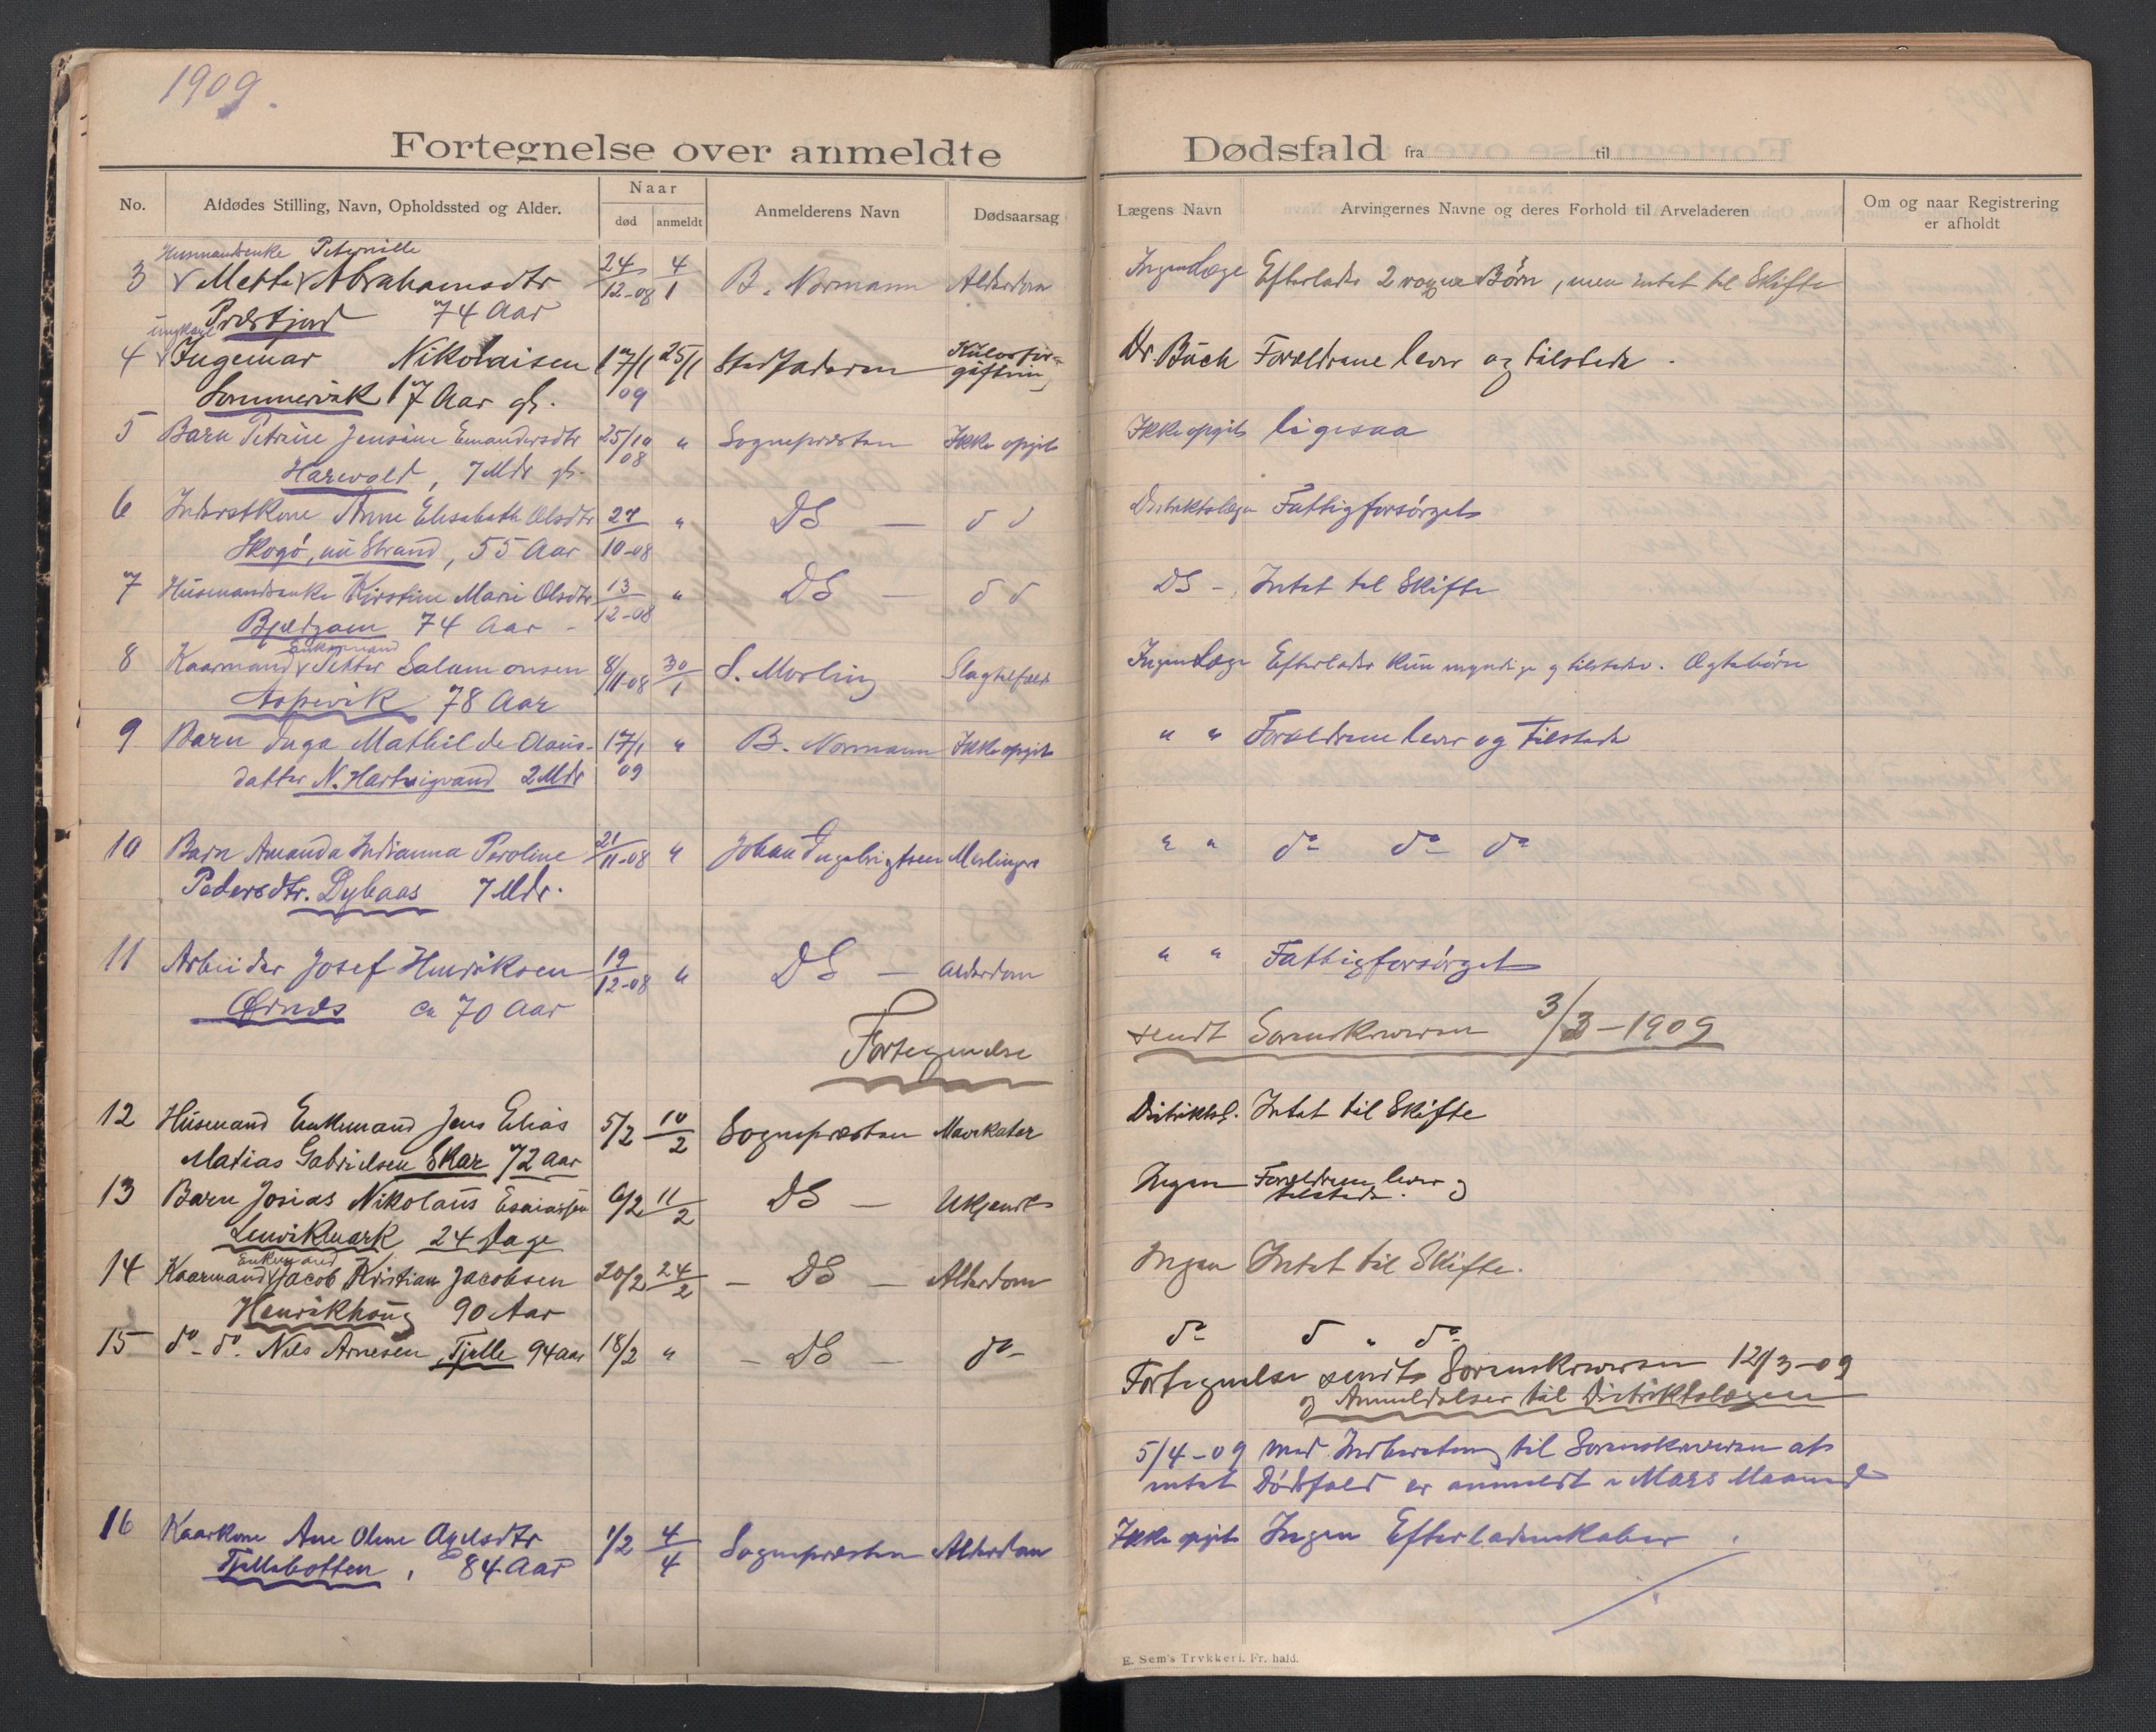 1909.
Fortegnelse over anmeldte Dødsfald fra til
No. Afdødes Stilling, Navn, Opholdssted og Alder. Naar død anmeldt Anmelderens Navn Dødsaarsag Lægens Navn Arvingernes Navne og deres Forhold til Arveladeren Om og naar Registrering er afholdt
Husmandsenke Peternille
3 Mette Abrahamsdtr 24/12-08 4/1 B. Normann Alderdom Ingen Læge Efterlader 2 voxne Børn, men intet til Skifte
74 Aar
ungkarl
4 Ingemar Nikolaisen 17/1 09 25/1 Stedfaderen Kulosfor-giftning Dr. Buch Forældrene lever og tilstede.
Sommervik 17 Aar gl.
5 Barn Petrine Jensine Emandersdtr 25/10 08 " Sognepræsten Ikke opgit Ikke opgit ligesaa
Harevold, 7 Mdr gl.
6 Inderstkone Anne Elisabeth Olsdtr 27/10-08 " DS — d d Distriktslægen Fattigforsörget
Skogö, nu Strand, 55 Aar
7 Husmandsenke Kirstine Marie Olsdtr 13/12-08 " DS — d d DS - Intet til Skifte
74 Aar -
Enkemand
8 Kaarmand Petter Salamonsen 8/11-08 30/1 S. Merling Slagtilfælde Ingen Læge Efterlader kun myndige og tilstedev. Ægtebörn
Aspevik 78 Aar
9 Barn Inga Mathilde Claus- 17/1 09 " B. Normann Ikke opgit " " Forældrene lever og tilstede
datter N. Hartvigvand 2 Mdr
10 Barn Amanda Indianna Peroline 21/11-08 " Johan Ingebrigtsen " " do do do
Pedersdtr. Dybaas 7 Mdr.
11 Arbeider Josef Henriksen 19/12-08 " DS — Alderdom " " Fattigforsörget
Ørnes ca 70 Aar
Fortegnelse sendt Sorenskriveren 3/3-1909
12 Husmand Enkemand Jens Elias 5/2 10/2 Sognepræsten Mavekatar Distriktsl. Intet til Skifte
Matias Gabrielsen Skar 72 Aar
13 Barn Josias Nikolaus Esaiassen 6/2 11/2 DS — Ukjendt Ingen Forældrene lever og tilstede.
Lenvikmark 24 Dage
Enkemand
14 Kaarmand Jacob Kristian Jacobsen 20/2 24/2 - DS - Alderdom Ingen Intet til Skifte.
Henrikhaug 90 Aar
15 do do. Nils Arnesen, Tjelle 94 aar 18/2 " - DS - do- do d " do
Fortegnelse sendt Sorenskriveren 12/3-09
og Anmeldelser til Distriktslægen
5/4-09 med Indberetning til Sorenskriveren at
intet Dödsfald er anmeldt i Mars Maaned
16 Kaarkone Ane Oline Axelsdtr 1/2 4/4 Sognepræsten Alderdom Ikke opgit Ingen Efterladenskaber.
Tjellebotten, 84 Aar
E. Sem's Trykkeri. Fr. hald.